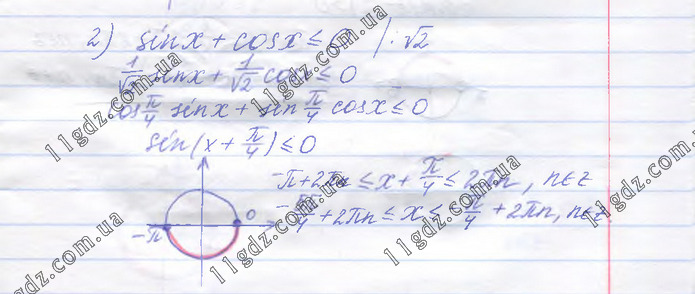 2) sinx + cosx ≤ 0 / : √2
1/√2 sinx + 1/√2 cosx ≤ 0
cos π/4 sinx + sin π/4 cosx ≤ 0
sin(x + π/4) ≤ 0
-π + 2πn ≤ x + π/4 ≤ 2πn, n∈z
-5π/4 + 2πn ≤ x ≤ -π/4 + 2πn, n∈z
0
-π
11gdz.com.ua
11gdz.com.ua
11gdz.com.ua
11gdz.com.ua
11gdz.com.ua
11gdz.com.ua